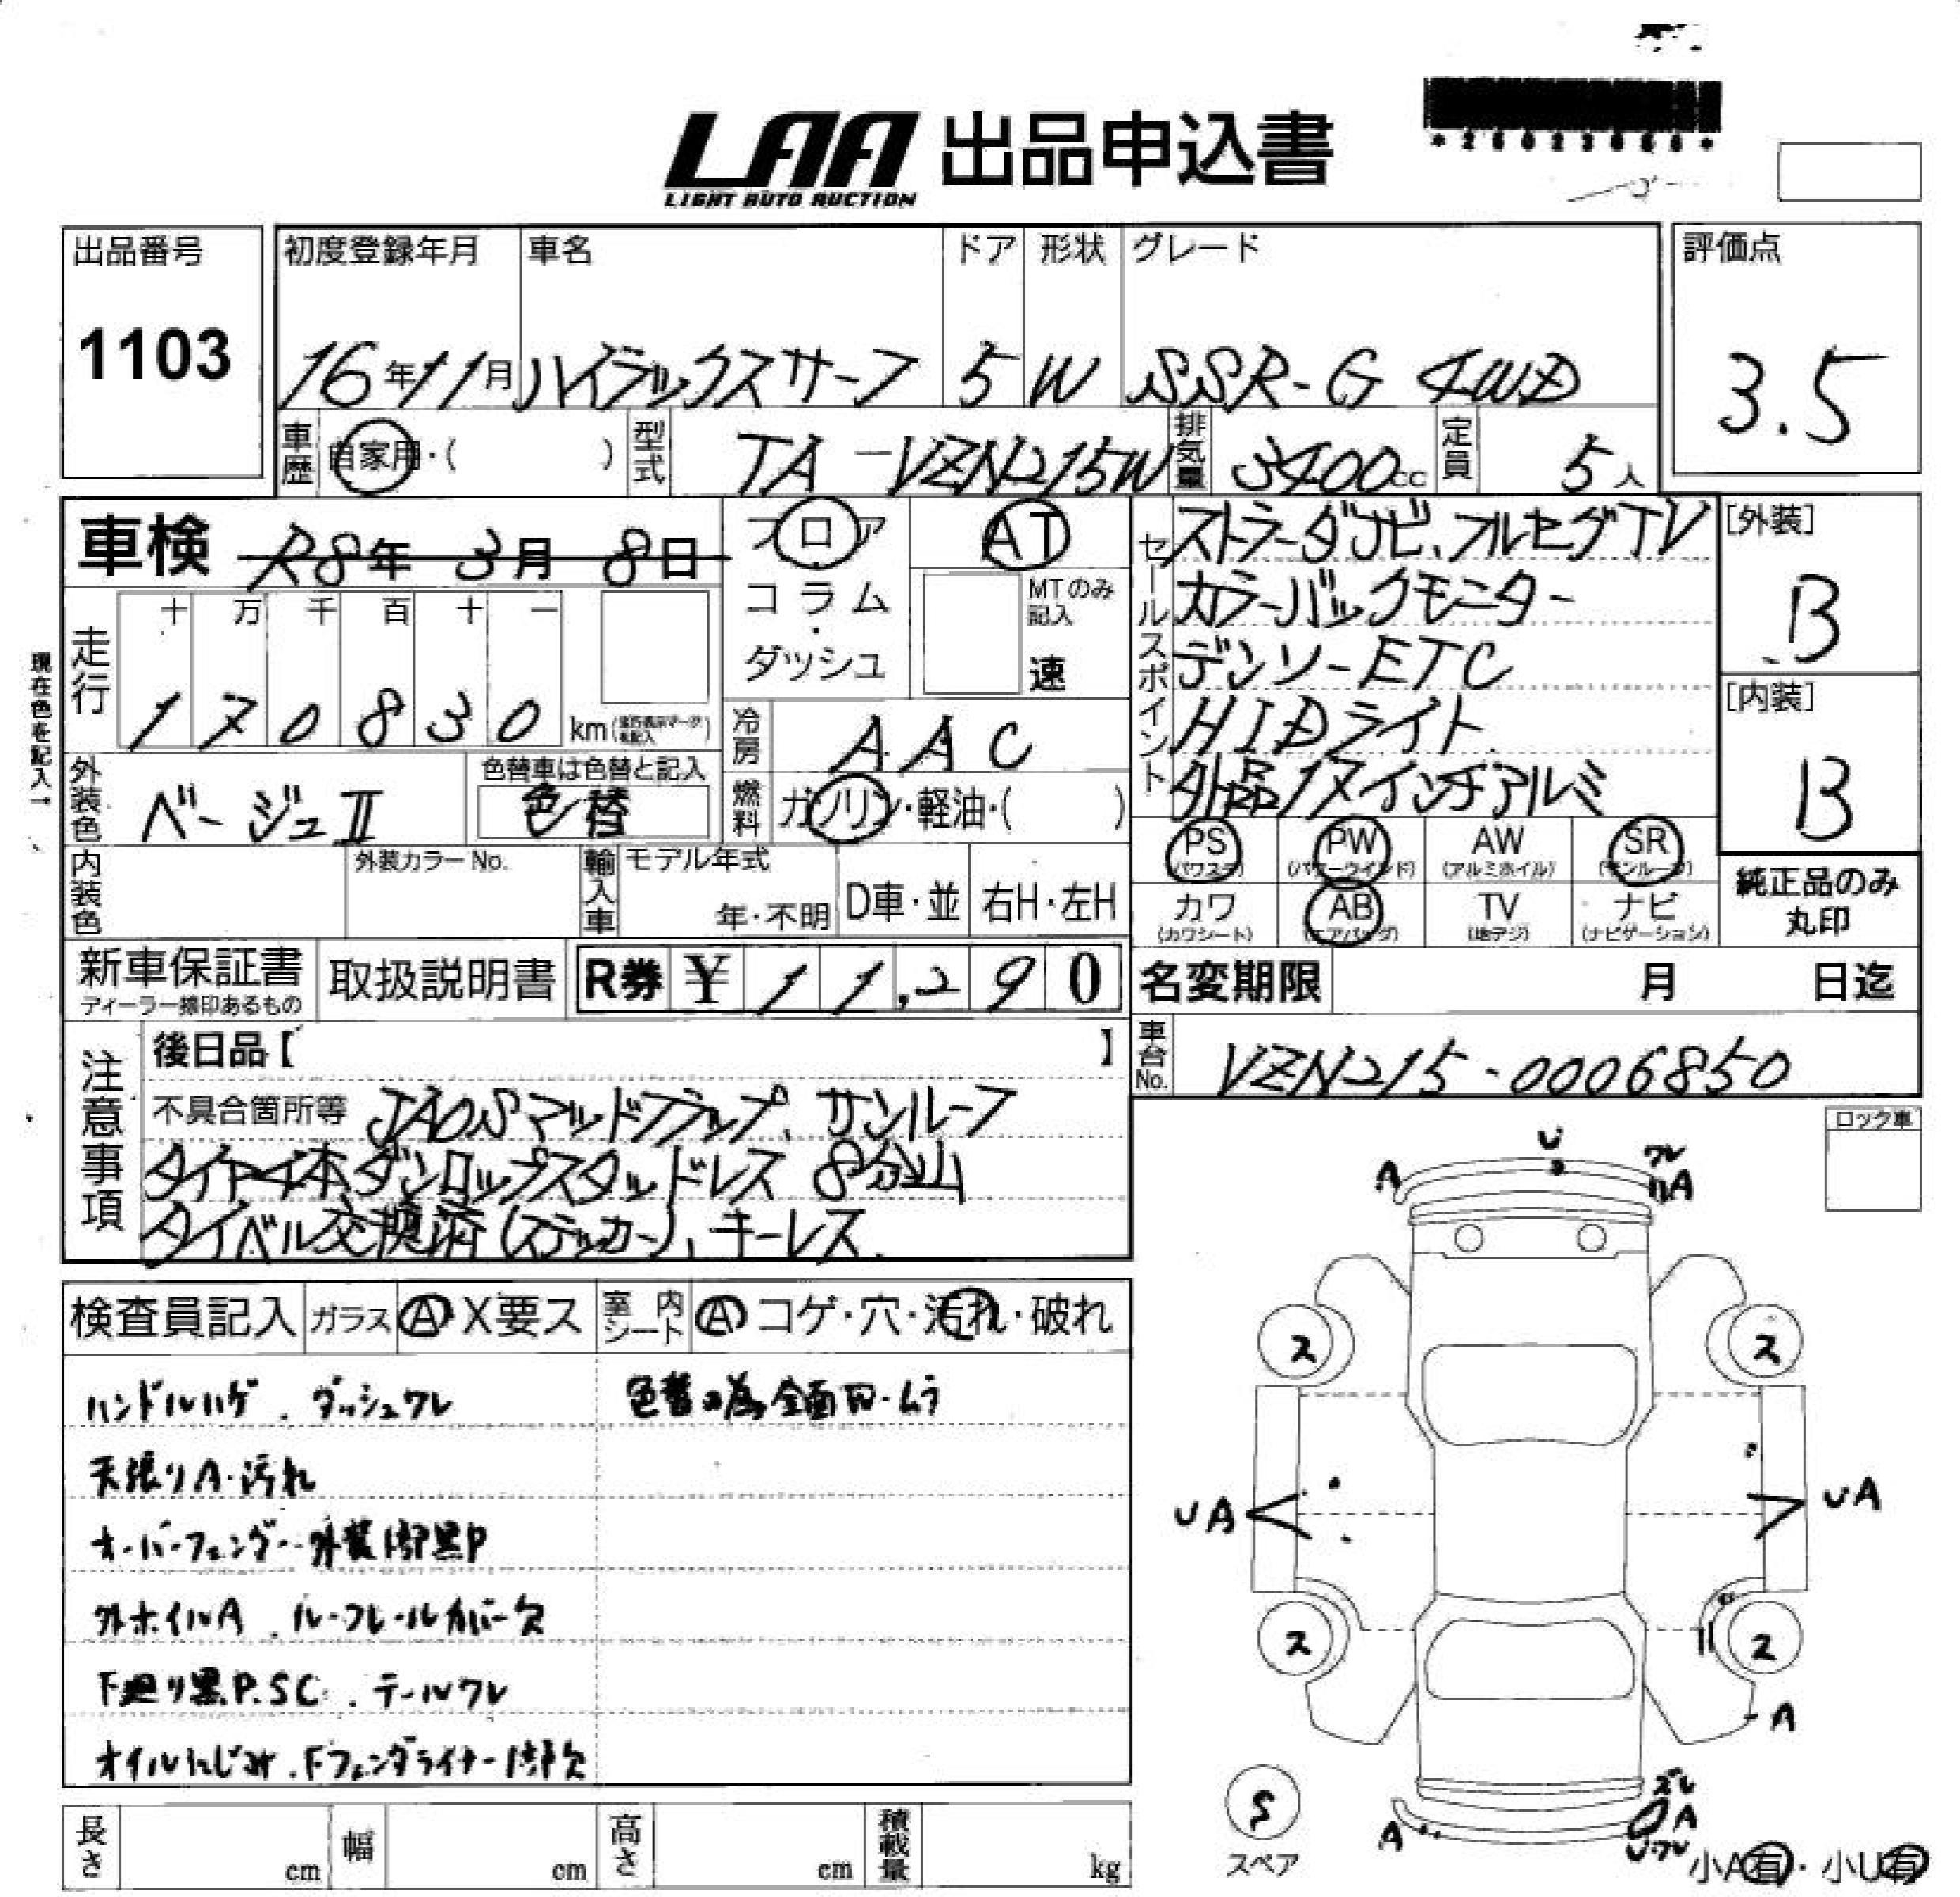 LAA 出品申込書
LIGHT AUTO AUCTION
出品番号 初度登録年月 車名 ドア 形状 グレード 評価点
1103 16年11月 ハイラックスサーフ 5 W SSR-G 4WD 3.5
車歴 自家用・( ) 型式 TA-VZN215W 排気量 3400cc 定員 5人
車検 R8年 3月 8日 フロア AT
コラム・ダッシュ MTのみ記入 速
走行 十 万 千 百 十 一
170830 km
現在色を記入→
冷房 AAC
外装色 ベージュII 色替車は色替と記入 色替
燃料 ガソリン・軽油・( )
内装色 外装カラーNo. 輸入車 モデル年式 年・不明 D車・並 右H・左H
セールスポイント
ストラーダナビ、フルセグTV
カラーバックモニター
デンソーETC
HIDライト
外品17インチアルミ
[外装] B
[内装] B
PS (パワステ) PW (パワーウインド) AW (アルミホイル) SR (サンルーフ)
カワ (カワシート) AB (エアバッグ) TV (地デジ) ナビ (ナビゲーション)
純正品のみ丸印
新車保証書 取扱説明書 R券 ¥11,290
名変期限 月 日迄
車台No. VZN215-0006850
注意事項
後日品【 】
不具合箇所等 JAOSマッドフラップ、サンルーフ
タイヤ4本ダンロップスタッドレス 8分山
タイベル交換済(ステッカー)、キーレス
ロック車
検査員記入 ガラス A・X要ス 室内シート A コゲ・穴・汚れ・破れ
ハンドルハゲ、ダッシュワレ 色替の為全面 ・ムラ
天張りA・汚れ
オーバーフェンダー・外装1部黒P
外ホイルA、ルーフレールカバー欠
下廻り黒P.SC、テールワレ
オイルにじみ、Fフェンダライナー1部欠
A U ワレ A
ス ス
UA UA
ス ス
A
ズレ
A A
U・ワレ
S
スペア
小A有・小U有
長さ cm 幅 cm 高さ cm 積載量 kg